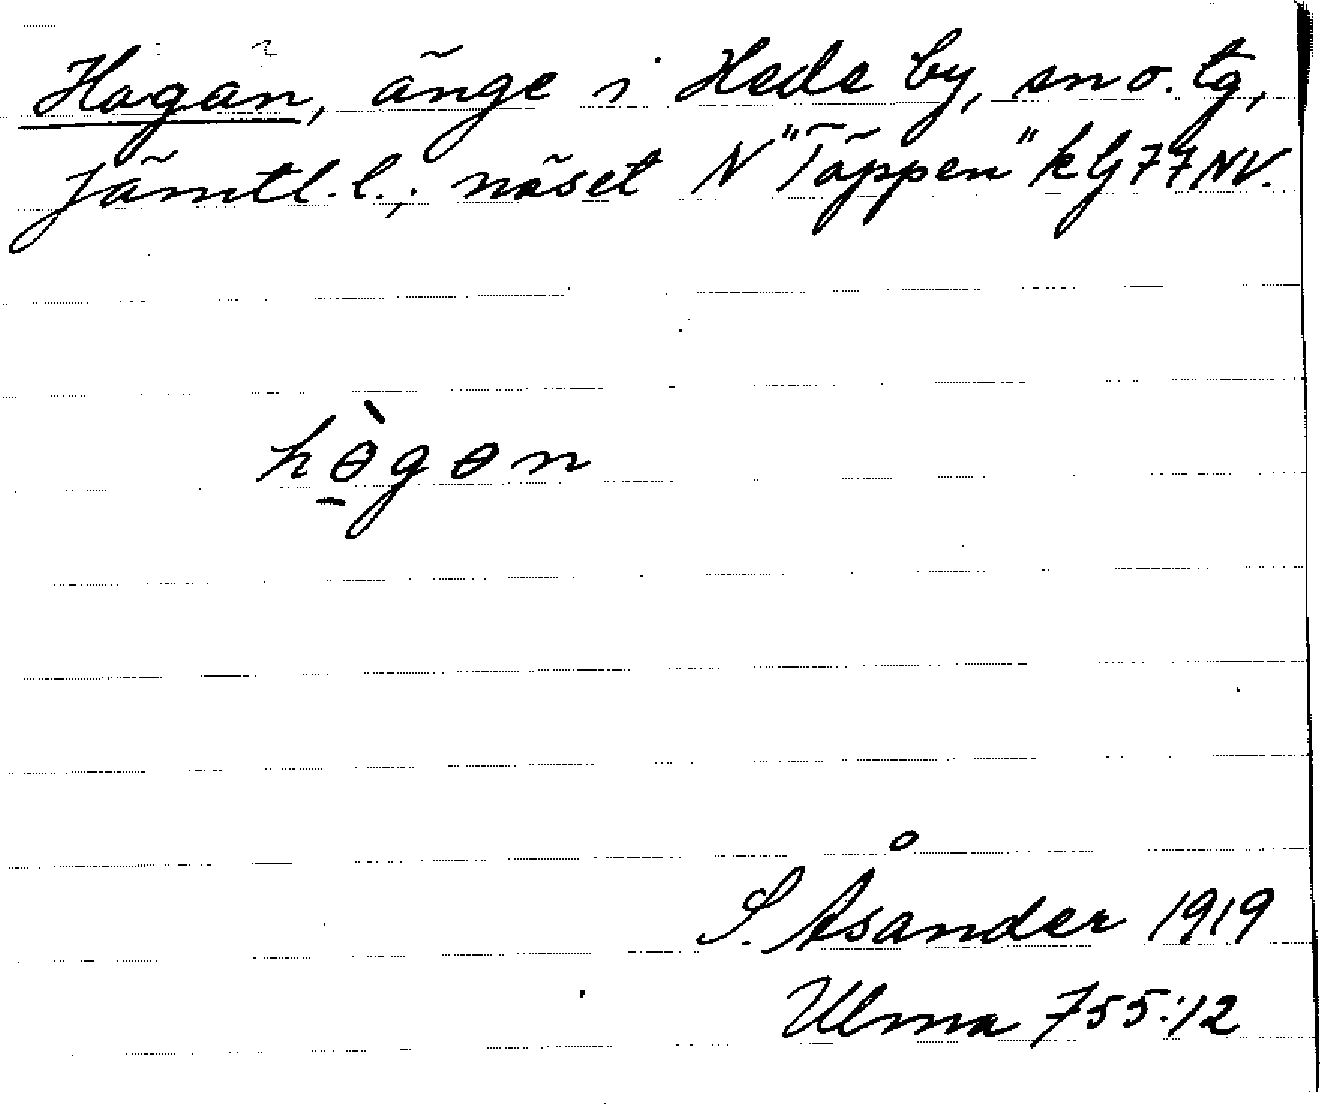 Hagan, änge i Hede by, sn o. tg,
Jämtl. l.; näset N "Täppen" kbj 77 NV.
hɵ̀gɵn
S. Åsander 1919
Ulma 755:12